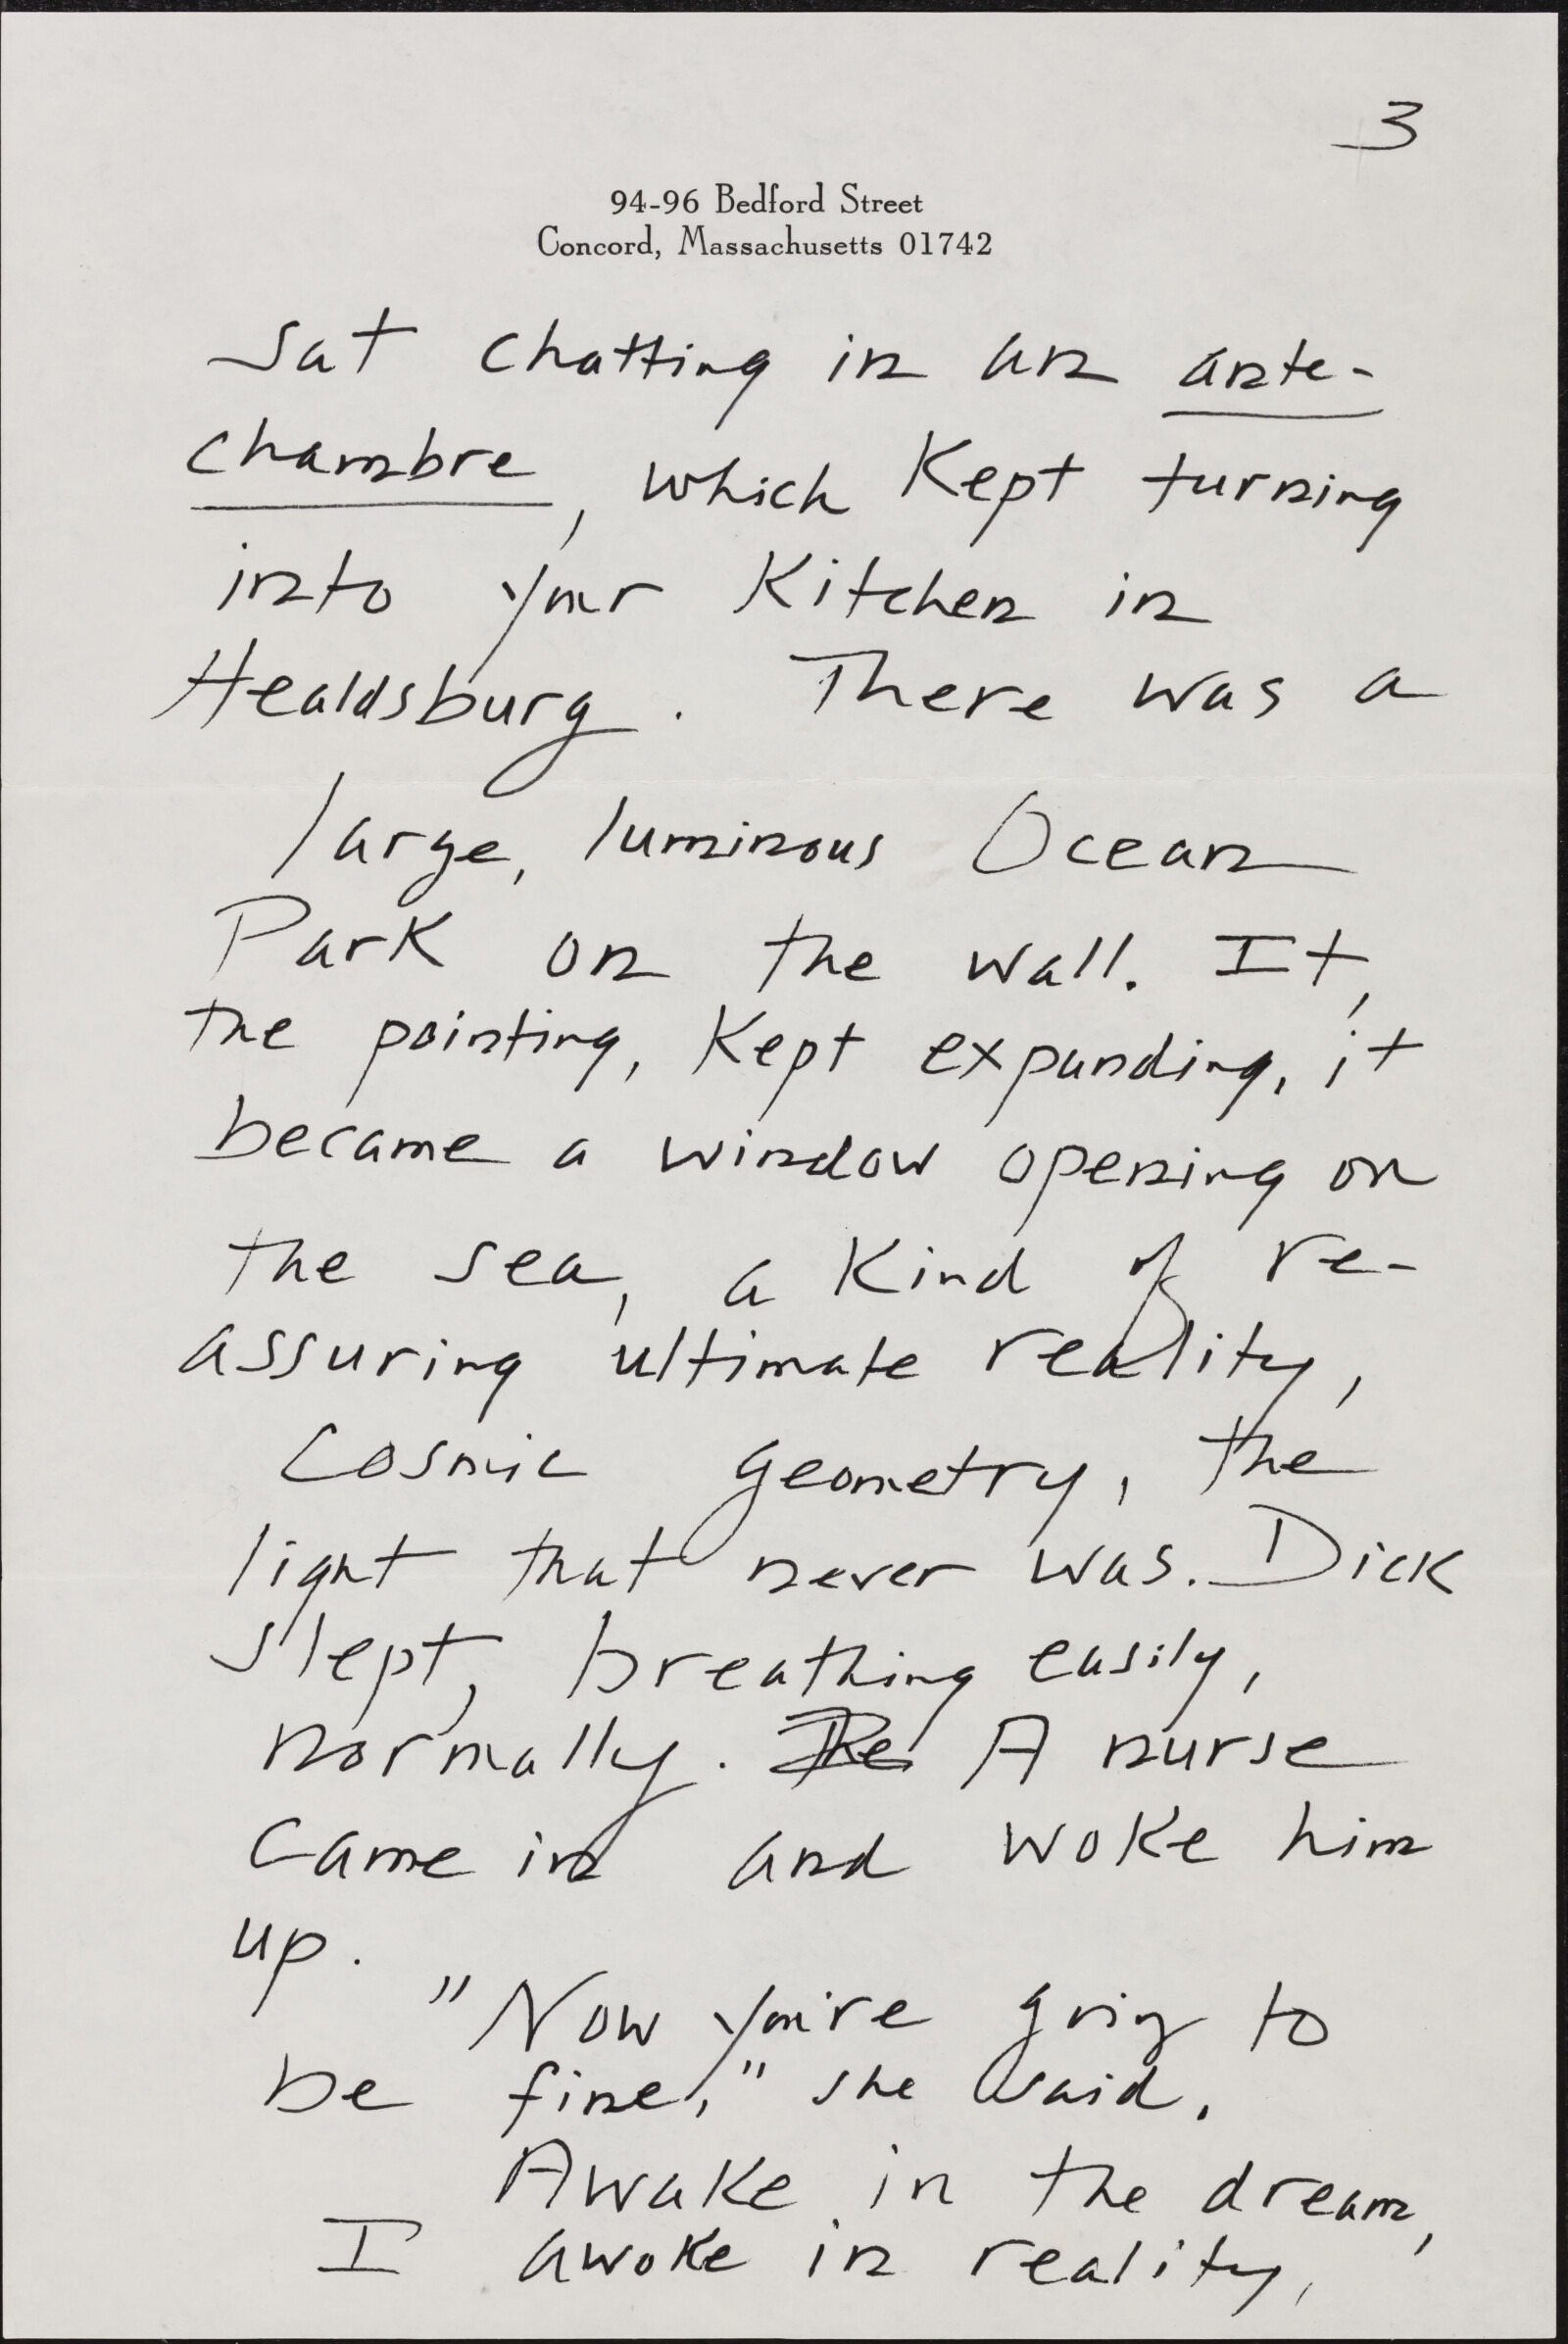 3
94-96 Bedford Street
Concord, Massachusetts 01742
sat chatting in an ante-
chambre, which kept turning
into your kitchen in
Healdsburg. There was a
large, luminous Ocean
Park on the wall. It,
the painting, kept expanding, it
became a window opening on
the sea, a kind of re-
assuring ultimate reality,
Cosmic geometry, the
light that never was. Dick
slept, breathing easily,
normally. The A nurse
came in and woke him
up.
"Now you're going to
be fine," she said.
Awake in the dream,
I awoke in reality,